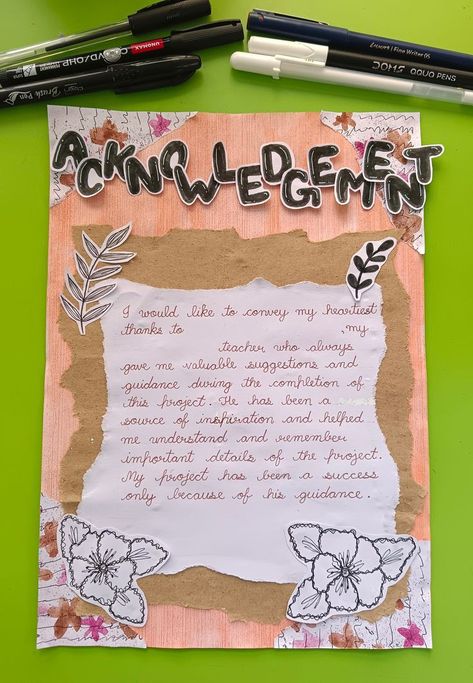 UNOMAX
Brush Pen
Luxor | Fine Writer 05
DOMS AQUA PENS
ACKNOWLEDGEMENT
I would like to convey my heartiest
thanks to , my
teacher who always
gave me valuable suggestions and
guidance during the completion of
this project. He has been a
source of inspiration and helped
me understand and remember
important details of the project.
My project has been a success
only because of his guidance.